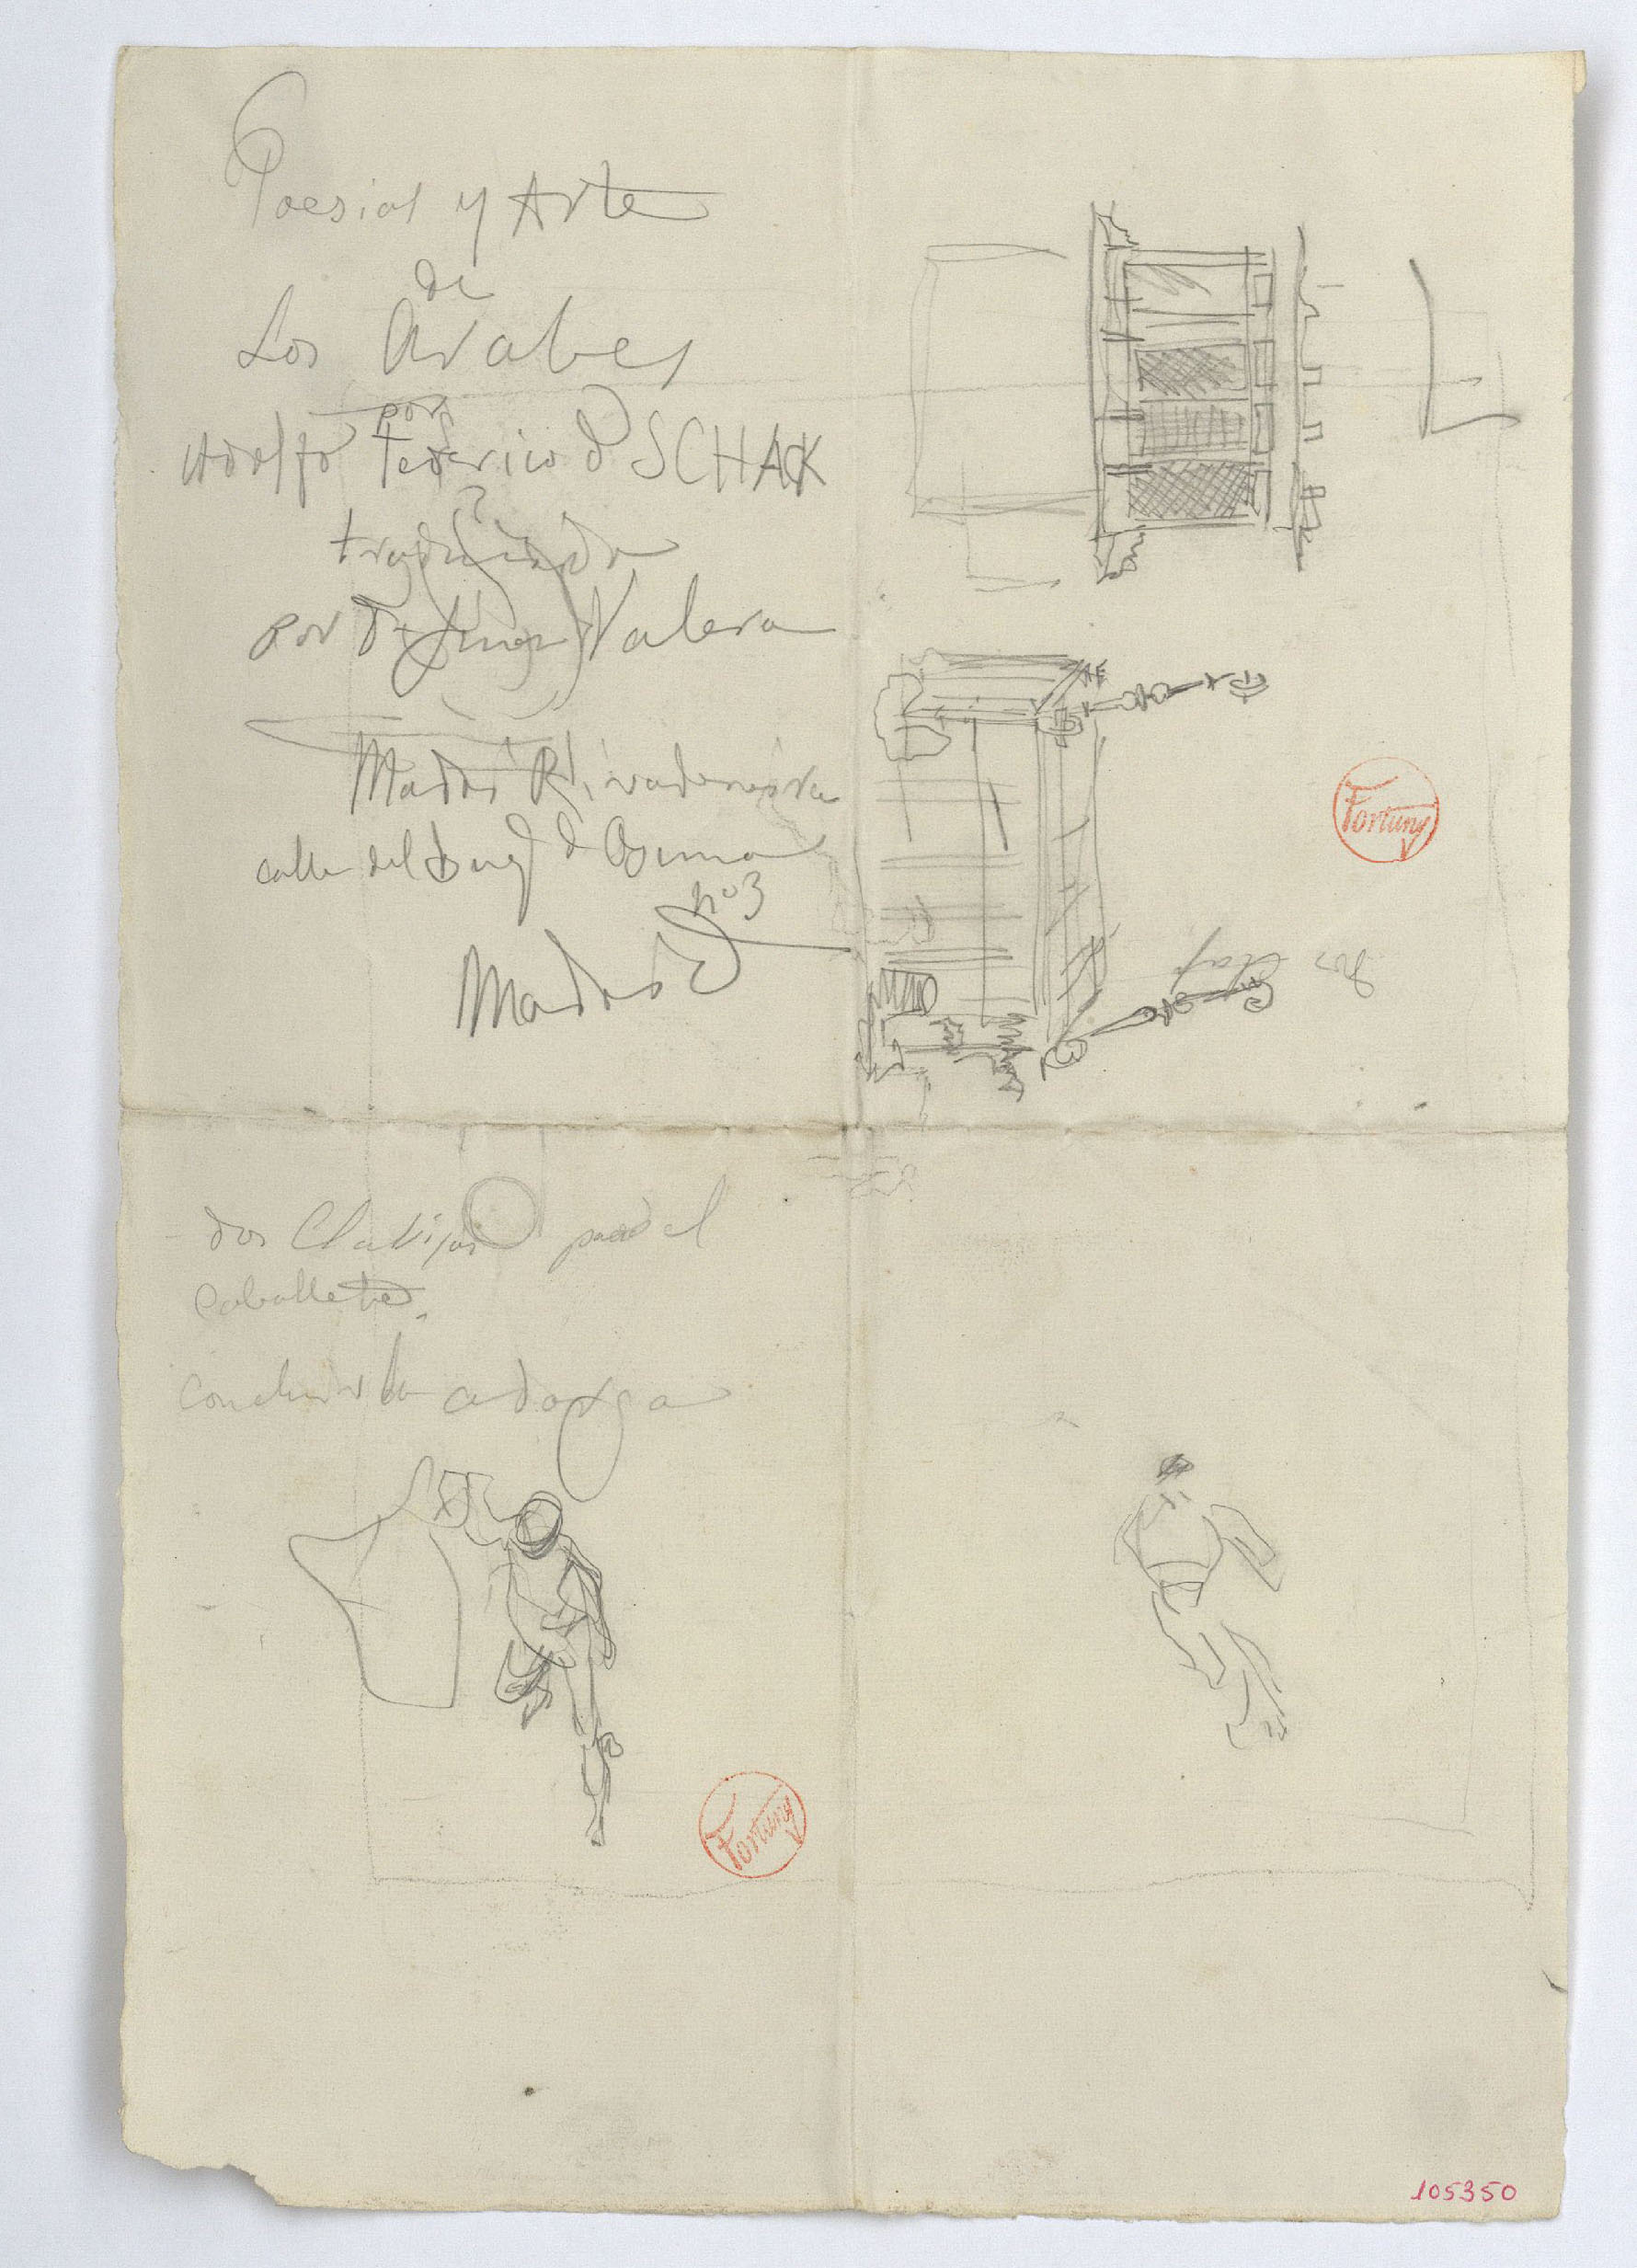 Poesias y Arte
de
Los Arabes
por
Adolfo Federico d SCHAK
traducida
por Dn Juan Valera
Madrid Rivadeneira
calle del Duq d Osuna
nº 3
Madrid
Fortuny
dos Clabijas para el
caballete.
concluir la adarga
Fortuny
105350